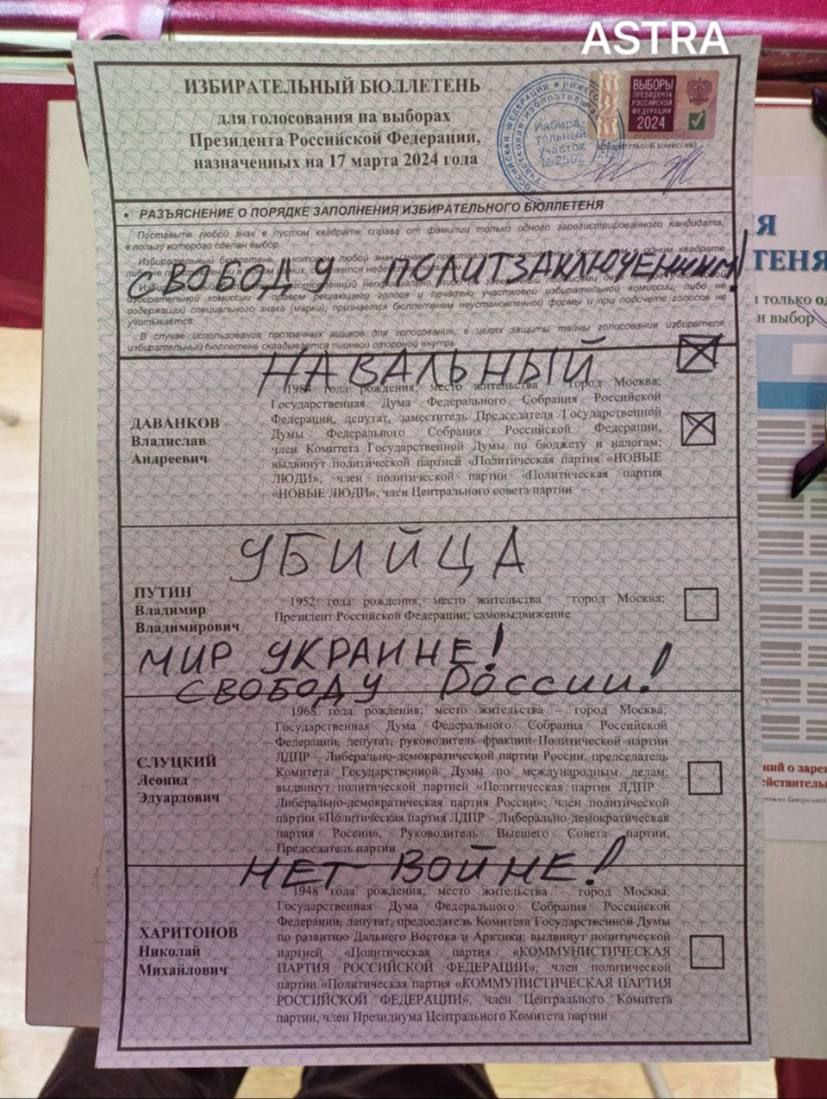 ASTRA
ИЗБИРАТЕЛЬНЫЙ БЮЛЛЕТЕНЬ
для голосования на выборах
Президента Российской Федерации,
назначенных на 17 марта 2024 года
ВЫБОРЫ
ПРЕЗИДЕНТА
РОССИЙСКОЙ
ФЕДЕРАЦИИ
2024
Избира-
тельный
участок
• РАЗЪЯСНЕНИЕ О ПОРЯДКЕ ЗАПОЛНЕНИЯ ИЗБИРАТЕЛЬНОГО БЮЛЛЕТЕНЯ
Поставьте любой знак в пустом квадрате справа от фамилии только одного зарегистрированного кандидата,
в пользу которого сделан выбор.
СВОБОДУ ПОЛИТЗАКЛЮЧЕННЫМ!
избирательной комиссии с правом решающего голоса и печатью участковой избирательной комиссии, либо не
содержащий специального знака (марки), признается бюллетенем неустановленной формы и при подсчете голосов не
учитывается.
В случае использования прозрачных ящиков для голосования, в целях защиты тайны голосования избирателя
избирательный бюллетень складывается лицевой стороной внутрь
НАВАЛЬНЫЙ
ДАВАНКОВ
Владислав
Андреевич
года рождения; место жительства – город Москва;
Государственная Дума Федерального Собрания Российской
Федерации, депутат, заместитель Председателя Государственной
Думы Федерального Собрания Российской Федерации,
член Комитета Государственной Думы по бюджету и налогам;
выдвинут политической партией «Политическая партия «НОВЫЕ
ЛЮДИ»; член политической партии «Политическая партия
«НОВЫЕ ЛЮДИ», член Центрального совета партии
УБИЙЦА
ПУТИН
Владимир
Владимирович
1952 года рождения; место жительства – город Москва;
Президент Российской Федерации; самовыдвижение
МИР УКРАИНЕ!
СВОБОДУ РОССИИ!
СЛУЦКИЙ
Леонид
Эдуардович
1968 года рождения; место жительства – город Москва;
Государственная Дума Федерального Собрания Российской
Федерации, депутат, руководитель фракции Политической партии
ЛДПР – Либерально-демократической партии России, председатель
Комитета Государственной Думы по международным делам;
выдвинут политической партией «Политическая партия ЛДПР –
Либерально-демократическая партия России»; член политической
партии «Политическая партия ЛДПР – Либерально-демократическая
партия России», Руководитель Высшего Совета партии,
Председатель партии
НЕТ ВОЙНЕ!
ХАРИТОНОВ
Николай
Михайлович
1948 года рождения; место жительства – город Москва;
Государственная Дума Федерального Собрания Российской
Федерации, депутат, председатель Комитета Государственной Думы
по развитию Дальнего Востока и Арктики; выдвинут политической
партией «Политическая партия «КОММУНИСТИЧЕСКАЯ
ПАРТИЯ РОССИЙСКОЙ ФЕДЕРАЦИИ»; член политической
партии «Политическая партия «КОММУНИСТИЧЕСКАЯ ПАРТИЯ
РОССИЙСКОЙ ФЕДЕРАЦИИ», член Центрального Комитета
партии, член Президиума Центрального Комитета партии